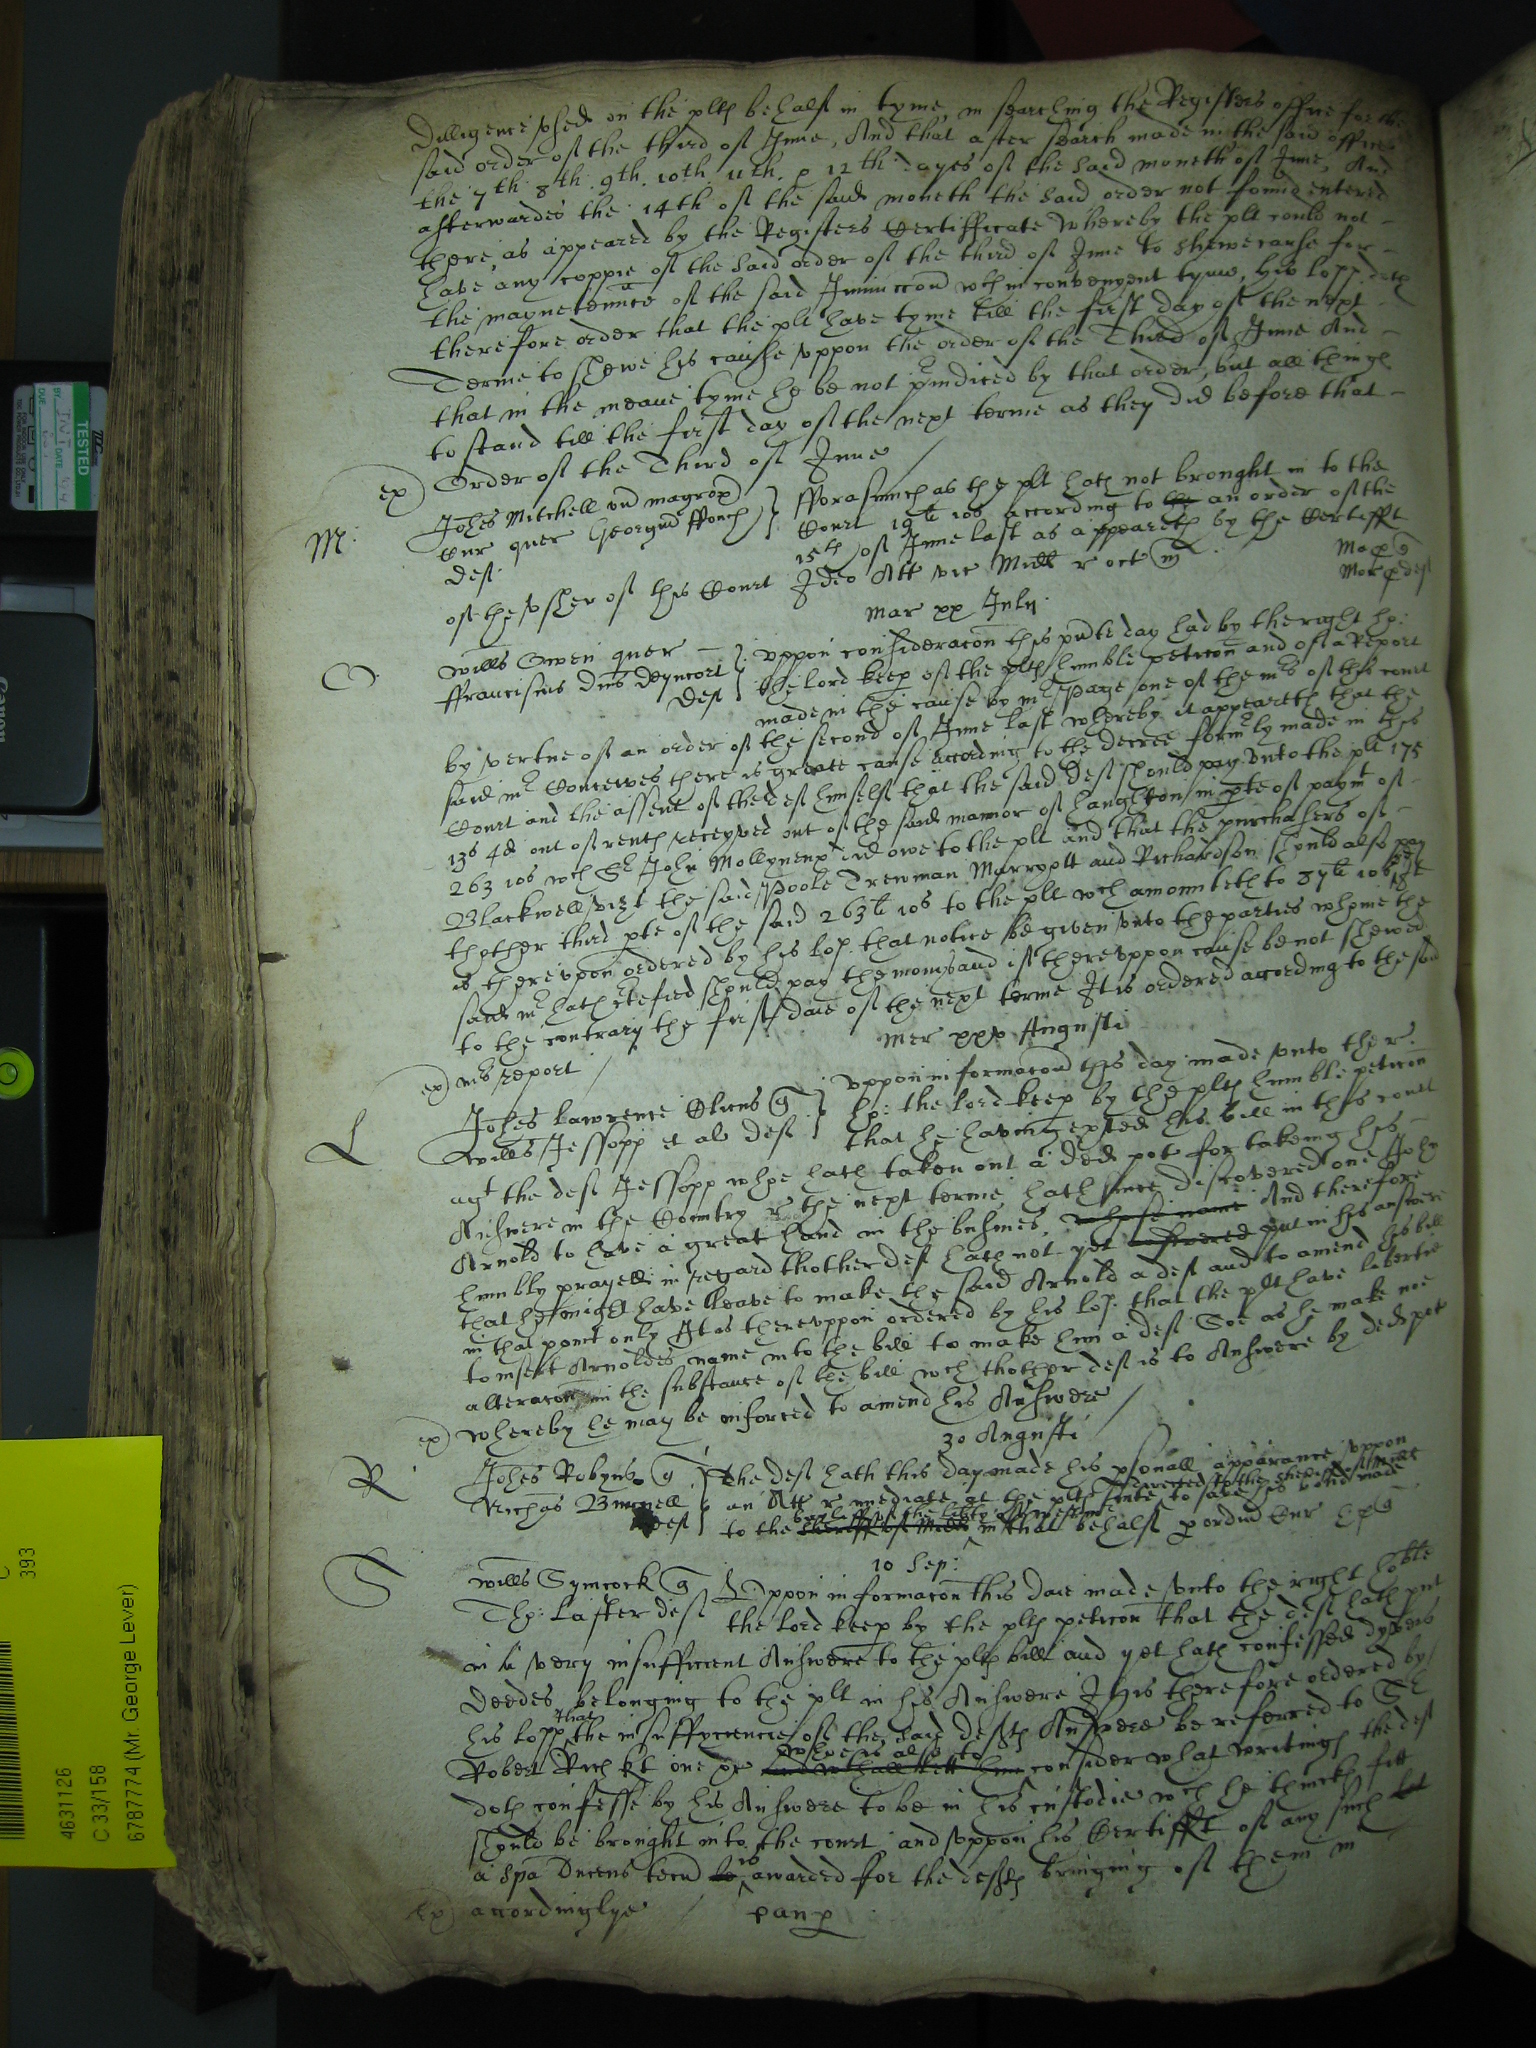 Dilligence vsed on the plts behalf in tyme, in searching the Registers office for the
said order of the third of June, And that after search made in the said office
the 7th 8th. 9th. 10th. 11th. & 12th dayes of the said moneth of June, And
afterwardes the 14th of the said moneth the said order not found entered
there, as appeared by the Registers Certifficate whereby the plt could not
have any coppie of the said order of the third of June to shewe cause for
the mayntenance of the said Iniunccon wch in convenyent tyme, his lopp doth
therefore order that the plt have tyme till the first day of the next
Terme to shewe his cause vppon the order of the Third of June And
that in the meane tyme he be not preiudiced by that order, but all things
to stand till the first day of the next terme as they did before that
ex) Order of the Third of June
M: Johes Mitchell vn magrox
Cur quer Georgius ffouch
def.
fforasmuch as the plt hath not brought in to the
Court 19li 10s according to the an order of the
15th of June last as appeareth by the Certifft
of the vsher of this Court Ideo Att vic Midd r oct m
Mar xx Julij
O Willus Owen quer
ffranciscus Dns Deyncort
def
vppon consideracon this pnte day had by the right ho:
the lord keep of the plts humble peticon and of a Report
made in the cause by mr Page one of the mrs of this court
by vertue of an order of the second of June last whereby it appeareth that the
said mr Conceives there is greate cause according to the decree formerly made in this
Court and the assent of the def himself that the said def should pay vnto the plt 175
13s 4d out of rents receyved out of the said mannor of haughton in pte of paymt of
263 10s wch Sr John Mollyneux did owe to the plt and that the purchasers of
Blackwell vizt the said Poole Trewman Marryott and Richardson should also pay
thother third pte of the said 263li 10s to the plt wch amounteth to 87li 16s 8d
is therevpon ordered by his lop. that notice be given vnto the parties whome the
said mr hath certefied should pay the monis and if therevppon cause be not shewed
to the contrary the first daie of the next terme It is ordered according to the said
ex) mrs report
Mer xxx Augusti
L Johes Lawrence Clicus q
Willus Jessopp et al def
vppon informacon this day made vnto the r.
ho: the lord keep by the plts humble peticon
that he having exhibited his bill in this court
agt the def Jessopp whoe hath taken out a ded pot for takeing his
Answere in the Country r the next terme, hath since discovered one John
Arnold to have a great hand in the busines, whose name And therefore
humbly prayeth in regard thother def hath not yet answered put in his answere
that he might have leave to make the said Arnold a def and to amend his bill
in that point only It is therevppon ordered by his lop. that the plt have libertie
to insert Arnoldes name into the bill to make him a def Soe as he make noe
alteracon in the substance of the bill wch thother def is to Answere by ded pot
ex) whereby he may be inforced to amend his Answere
30 Augusti
R Johes Robyns q
Richus Brunell
def
The def hath this day made his psonall appearance vppon
an Att r imediate at the plts sute directed to the sheriff of Midd to save his bond made
to the sheriff of Midd bayliff of the libty of westmr in that behalf p ordine Cur
10 Sep:
S Willus Symcock q
Tho: Laster def
Vppon informacon this daie made vnto the right hoble
the lord keep by the plts peticon that the def hath put
in a very insufficient Answere to the plts bill and yet hath confessed dyvers
Deedes belonging to the plt in his Answere It is therefore ordered by
his lopp that the insufficiencie of the said defts Answere be referred to Sr
Robert Rich kt one &c whoe is also to consider what writings the def
doth confesse by his Answere to be in his custodie wch he thincketh fitt
should be brought into the court and vppon his Certifft of any such
a spa Ducens tecu be is awarded for the defts bringing of them in
ex) accordinglye
TESTED
BY
DATE
DUE
Canon
393
4631126
C 33/158
6787774 (Mr. George Lever)